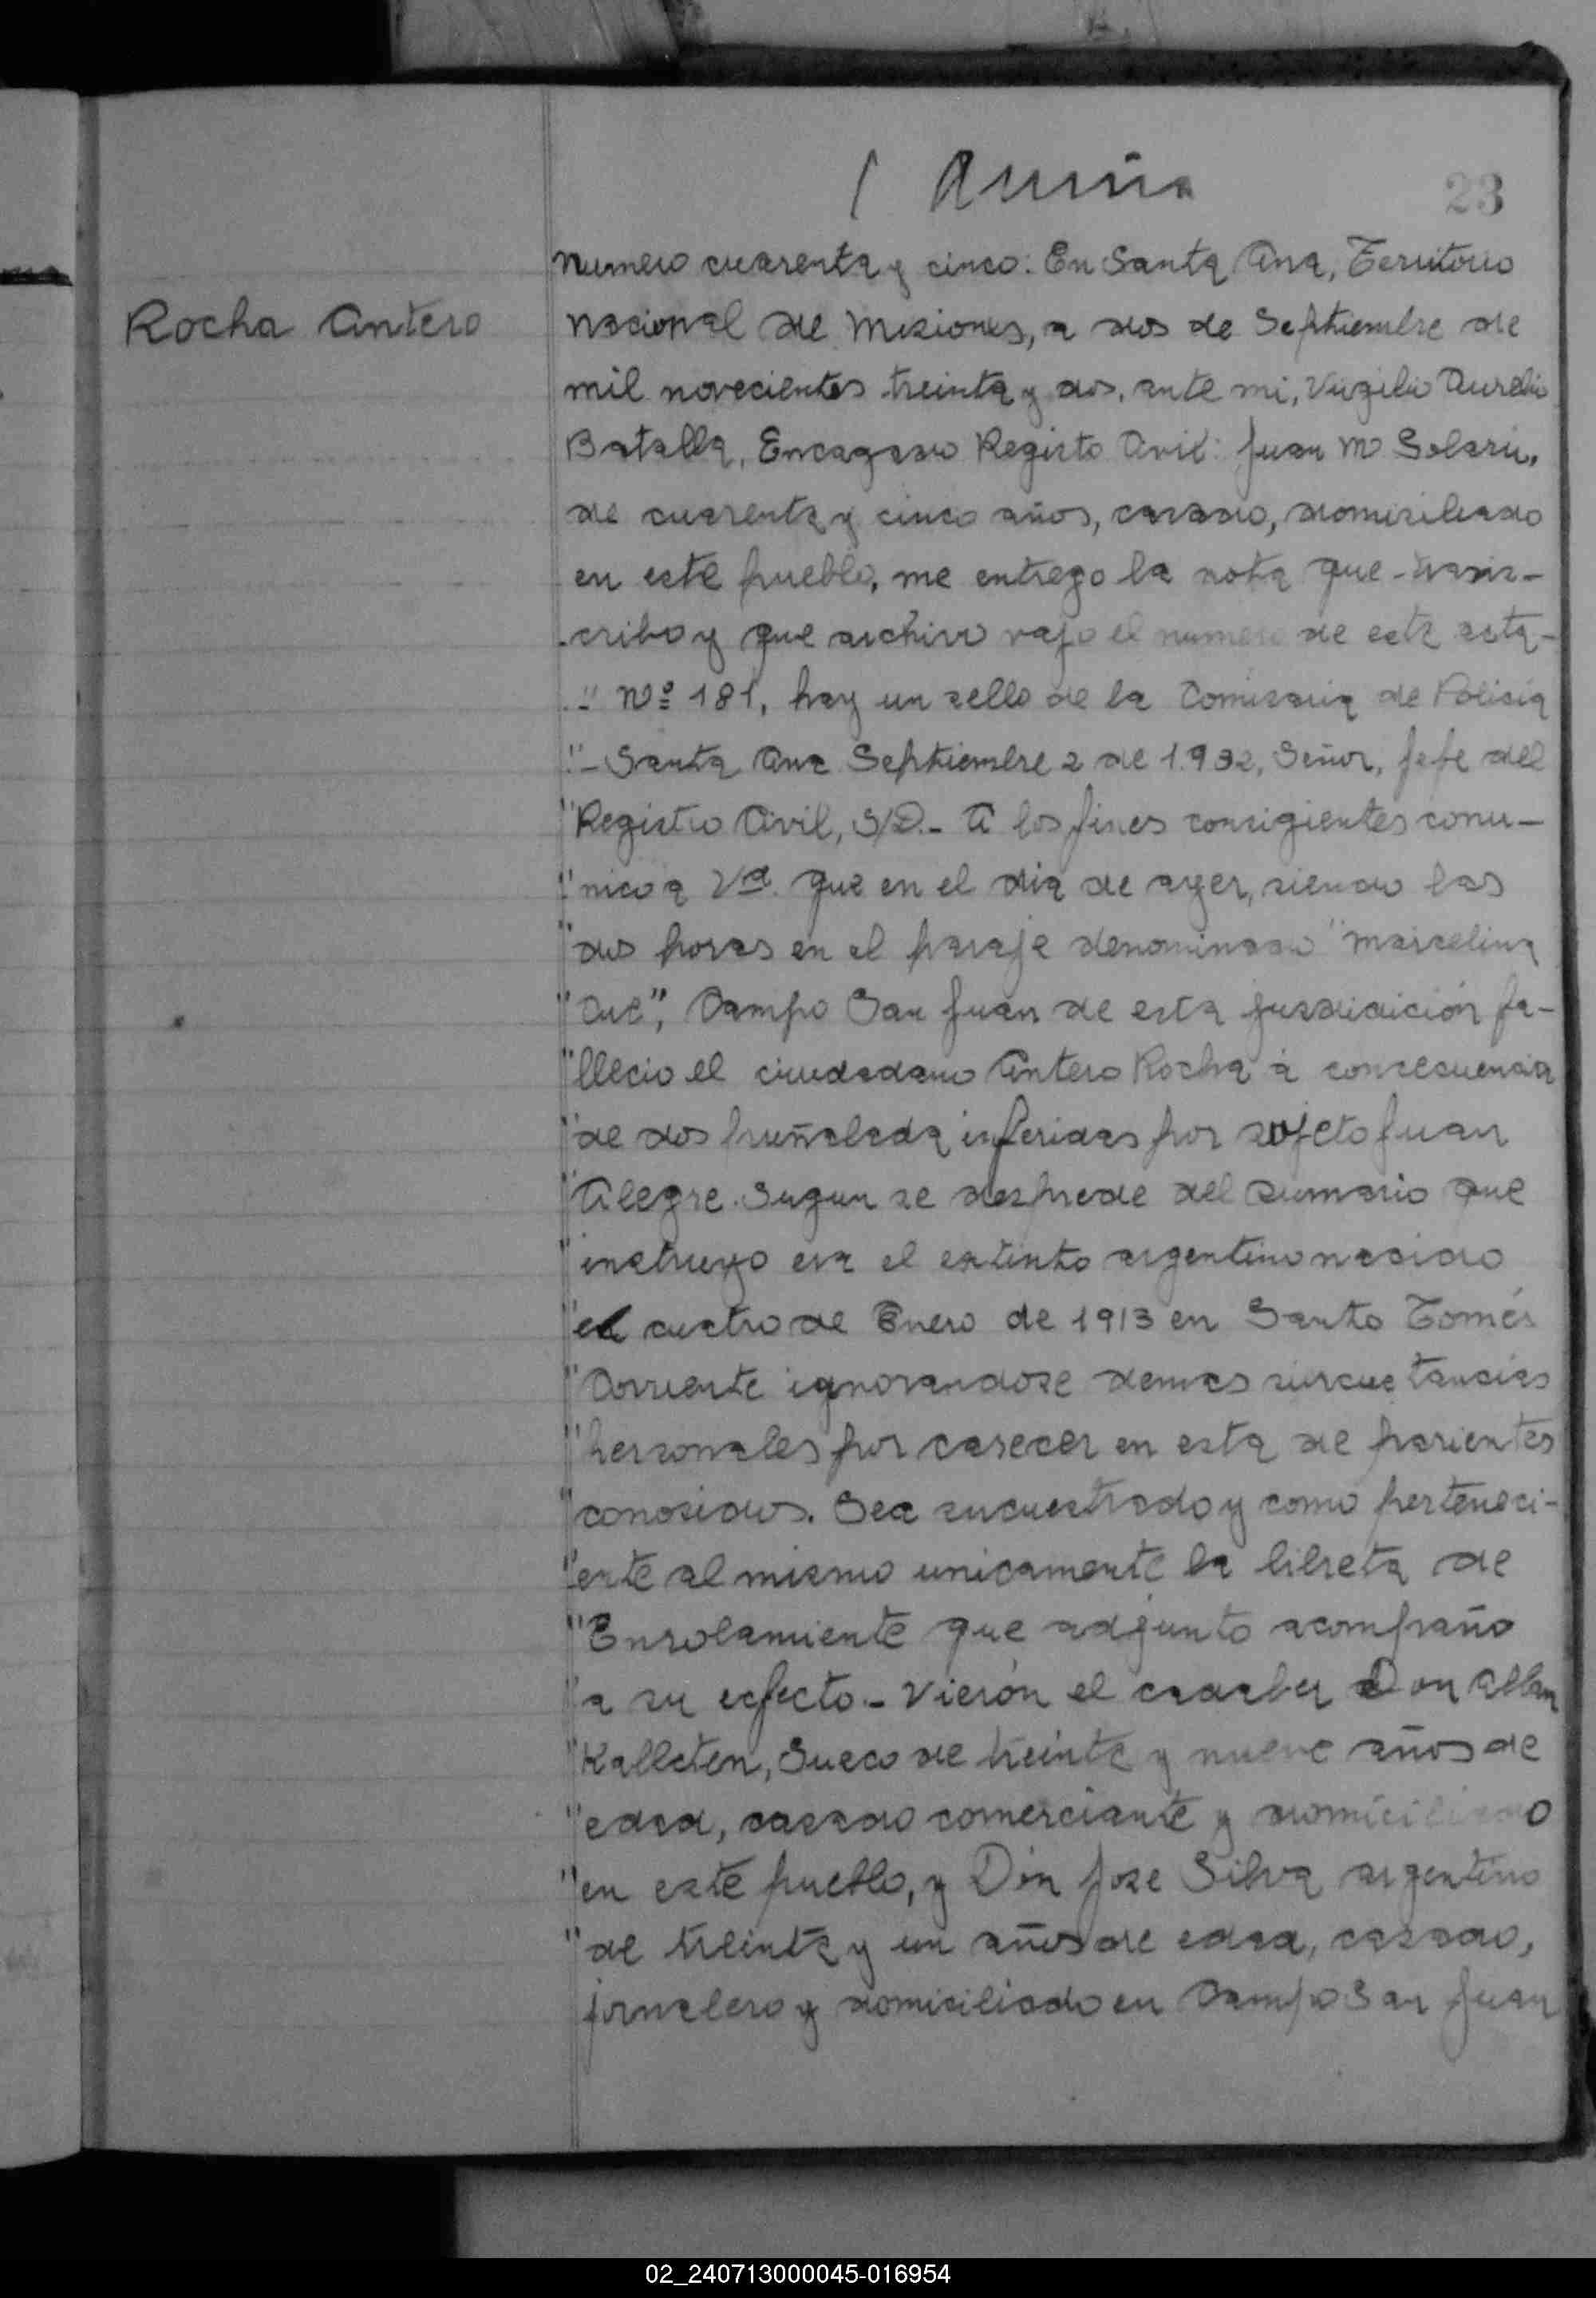 23
Rocha Antero
Numero cuarenta y cinco: En Santa Ana, Territorio
Nacional de Misiones, a dos de Septiembre de
mil novecientos treinta y dos, ante mi, Virgilio Aurelio
Batalla, Encagado Registo Civil: Juan M Solari,
de cuarenta y cinco años, casado, domisiliado
en este pueblo, me entrego la nota que trans-
cribo y que archivo vajo el numero de esta acta-
"- Nº 181, hay un sello de la Comisaria de Polisia
"- Santa Ana Septiembre 2 de 1.932, Señor, Jefe del
"Registro Civil, S/D.- A los fines consigientes comu-
"nico a Vd. que en el dia de ayer, siendo las
"dos horas en el paraje denominado "Marcelina
"Cué", Campo San Juan de esta jusridicición fa-
"llecio el ciudadano Antero Rocha á concecuencia
"de dos puñalada inferidas por sujeto Juan
"Alegre. Segun se desprede del sumario que
"instruyo era el extinto argentino nacido
"el cuatro de Enero de 1913 en Santo Tomés
"Corriente ignorandose demas sircustancias
"personales por carecer en esta de parientes
"conosidos. Sea encuestrado y como perteneci-
"ente al mismo unicamente la libreta de
"Enrolamiente que adjunto acompaño
"a su efecto.- Vierón el cadaber Don Allan
"Kallsten, Sueco de treinta y nueve años de
"edad, casado comerciante y domiciliado
"en este pueblo, y Dón Jose Silva argentino
"de treinta y un años de edad, casado,
jornalero y domisiliado en Campo San Juan
02_240713000045-016954